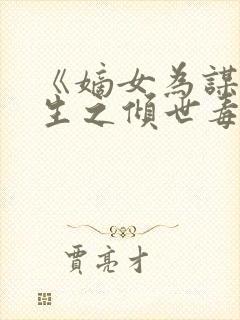 《嫡女為謀
生之傾世毒
賈亮才